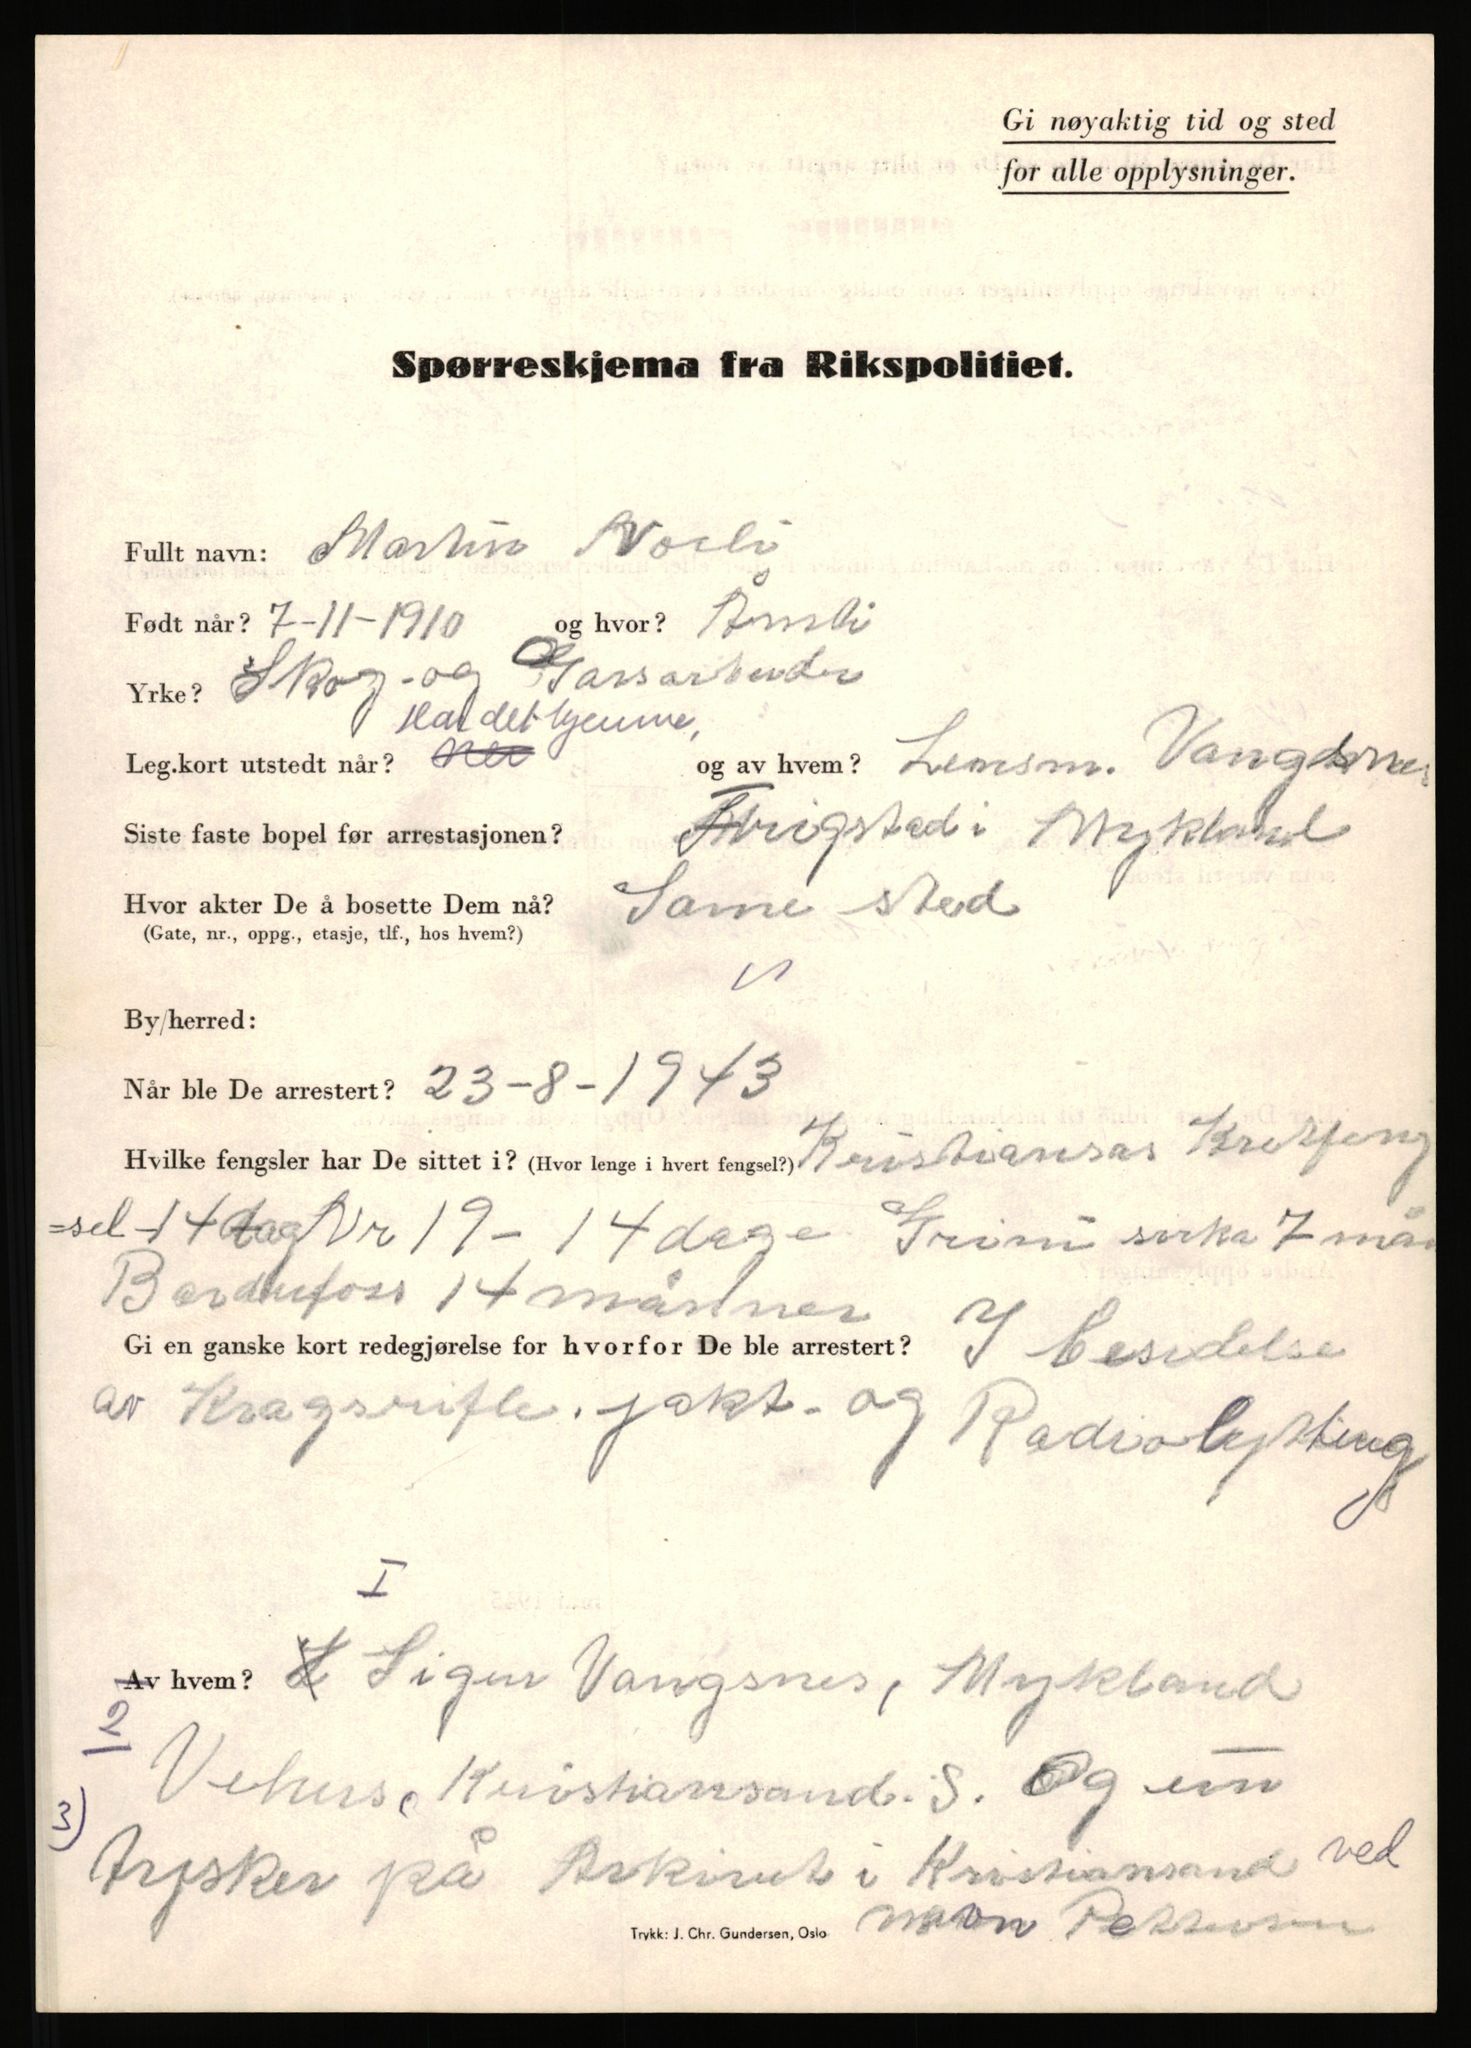 Gi nøyaktig tid og sted
for alle opplysninger.
Spørreskjema fra Rikspolitiet.
Fullt navn: Martin
Født når? 7-11-1910 og hvor? Åmli
Yrke? Skog- og
Har det hjemme,
Leg.kort utstedt når? og av hvem? Lensm. Vangsnes
Siste faste bopel før arrestasjonen? i Mykland
Hvor akter De å bosette Dem nå? Same sted
(Gate, nr., oppg., etasje, tlf., hos hvem?)
By/herred:
Når ble De arrestert? 23-8-1943
Hvilke fengsler har De sittet i? (Hvor lenge i hvert fengsel?) Kristiansas Kretfeng
=sel - 14 dag Nr 19 - 14 dage Grim sirka 7 mån
Bardufoss 14 månner
Gi en ganske kort redegjørelse for hvorfor De ble arrestert? I besidelse
av Kragsrifle. jakt- og Radiolysting
I
Av hvem? Sigur Vangsnes, Mykland
2
Vehus, Kristiansand. S. Og ein
3) tysker på Arkivet i Kristiansand ved
navn Pettersen
Trykk: J. Chr. Gundersen, Oslo